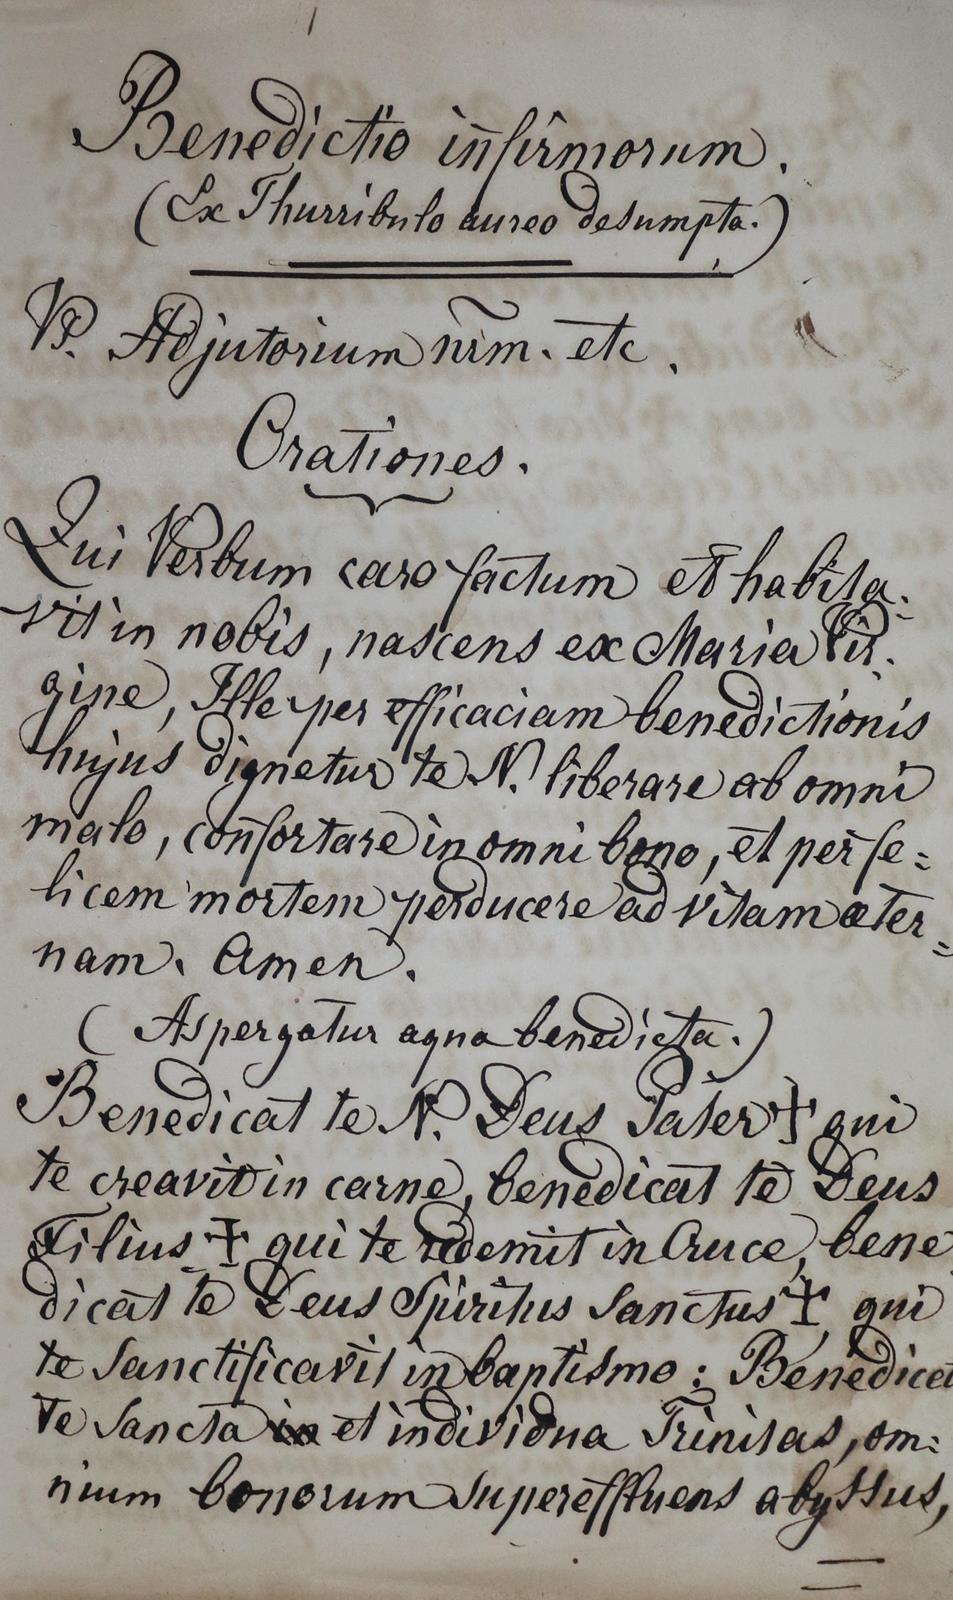 Benedictio infirmorum.
(Ex Thurribulo aureo desumpta.)
℣. Adjutorium nrm. etc.
Orationes.
Qui Verbum caro factum et habita-
vit in nobis, nascens ex Maria Vir-
gine, Ille per efficaciam benedictionis
hujus dignetur te N. liberare ab omni
malo, confortare in omni bono, et per fe=
licem mortem perducere ad vitam æter=
nam. Amen.
(Aspergatur aqua benedicta.)
Benedicat te N. Deus Pater ✝ qui
te creavit in carne, benedicat te Deus
Filius ✝ qui te redemit in Cruce, bene
dicat te Deus Spiritus Sanctus ✝, qui
te Sanctificavit in baptismo: Benedicat
te Sancta et individua Trinitas, om=
nium bonorum Supereffluens abyssus,